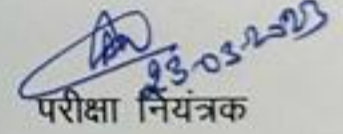 23-03-2023
परीक्षा नियंत्रक